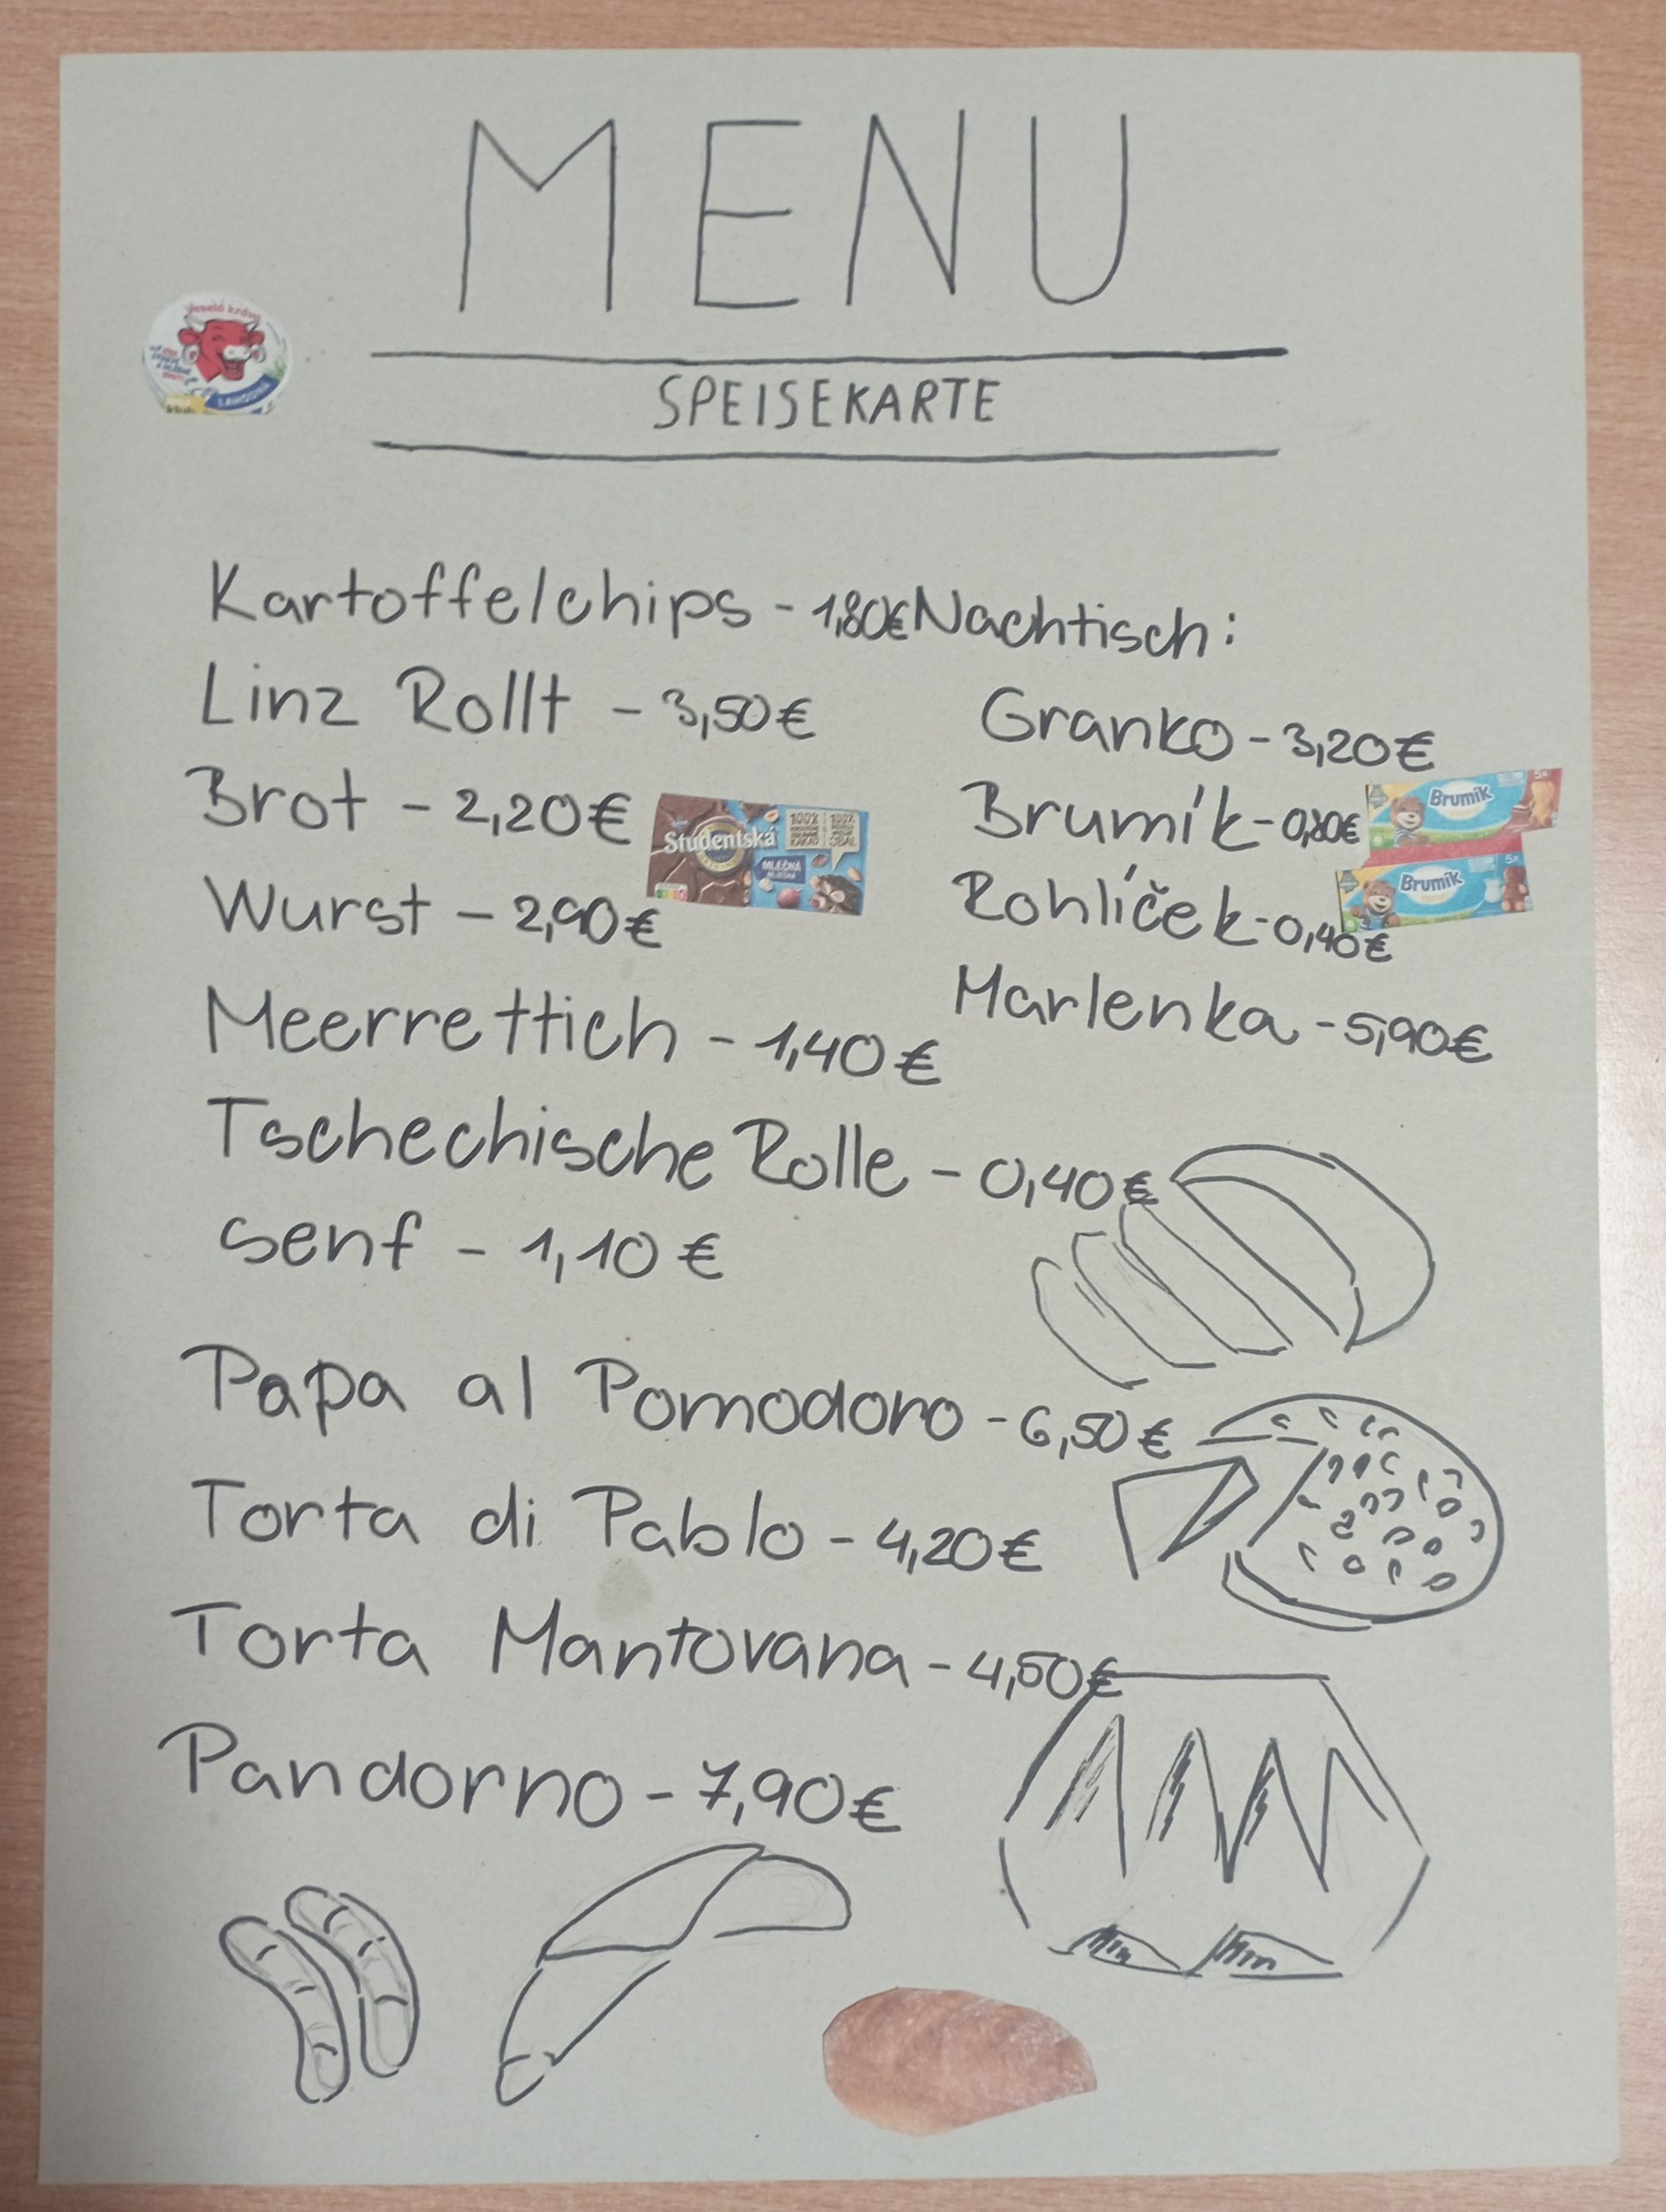 MENU
SPEISEKARTE
Veselá kráva
LAHODNÁ
Kartoffelchips - 1,80€
Linz Rollt - 3,50€
Brot - 2,20€
Studentská
100% 100%
MLÉČNÁ
Wurst - 2,90€
Meerrettich - 1,40€
Tschechische Rolle - 0,40€
Senf - 1,10€
Papa al Pomodoro - 6,50€
Torta di Pablo - 4,20€
Torta Mantovana - 4,50€
Pandorno - 7,90€
Nachtisch:
Granko - 3,20€
Brumík - 0,80€
Brumík
5x
Rohlíček - 0,40€
Brumík
5x
Marlenka - 5,90€